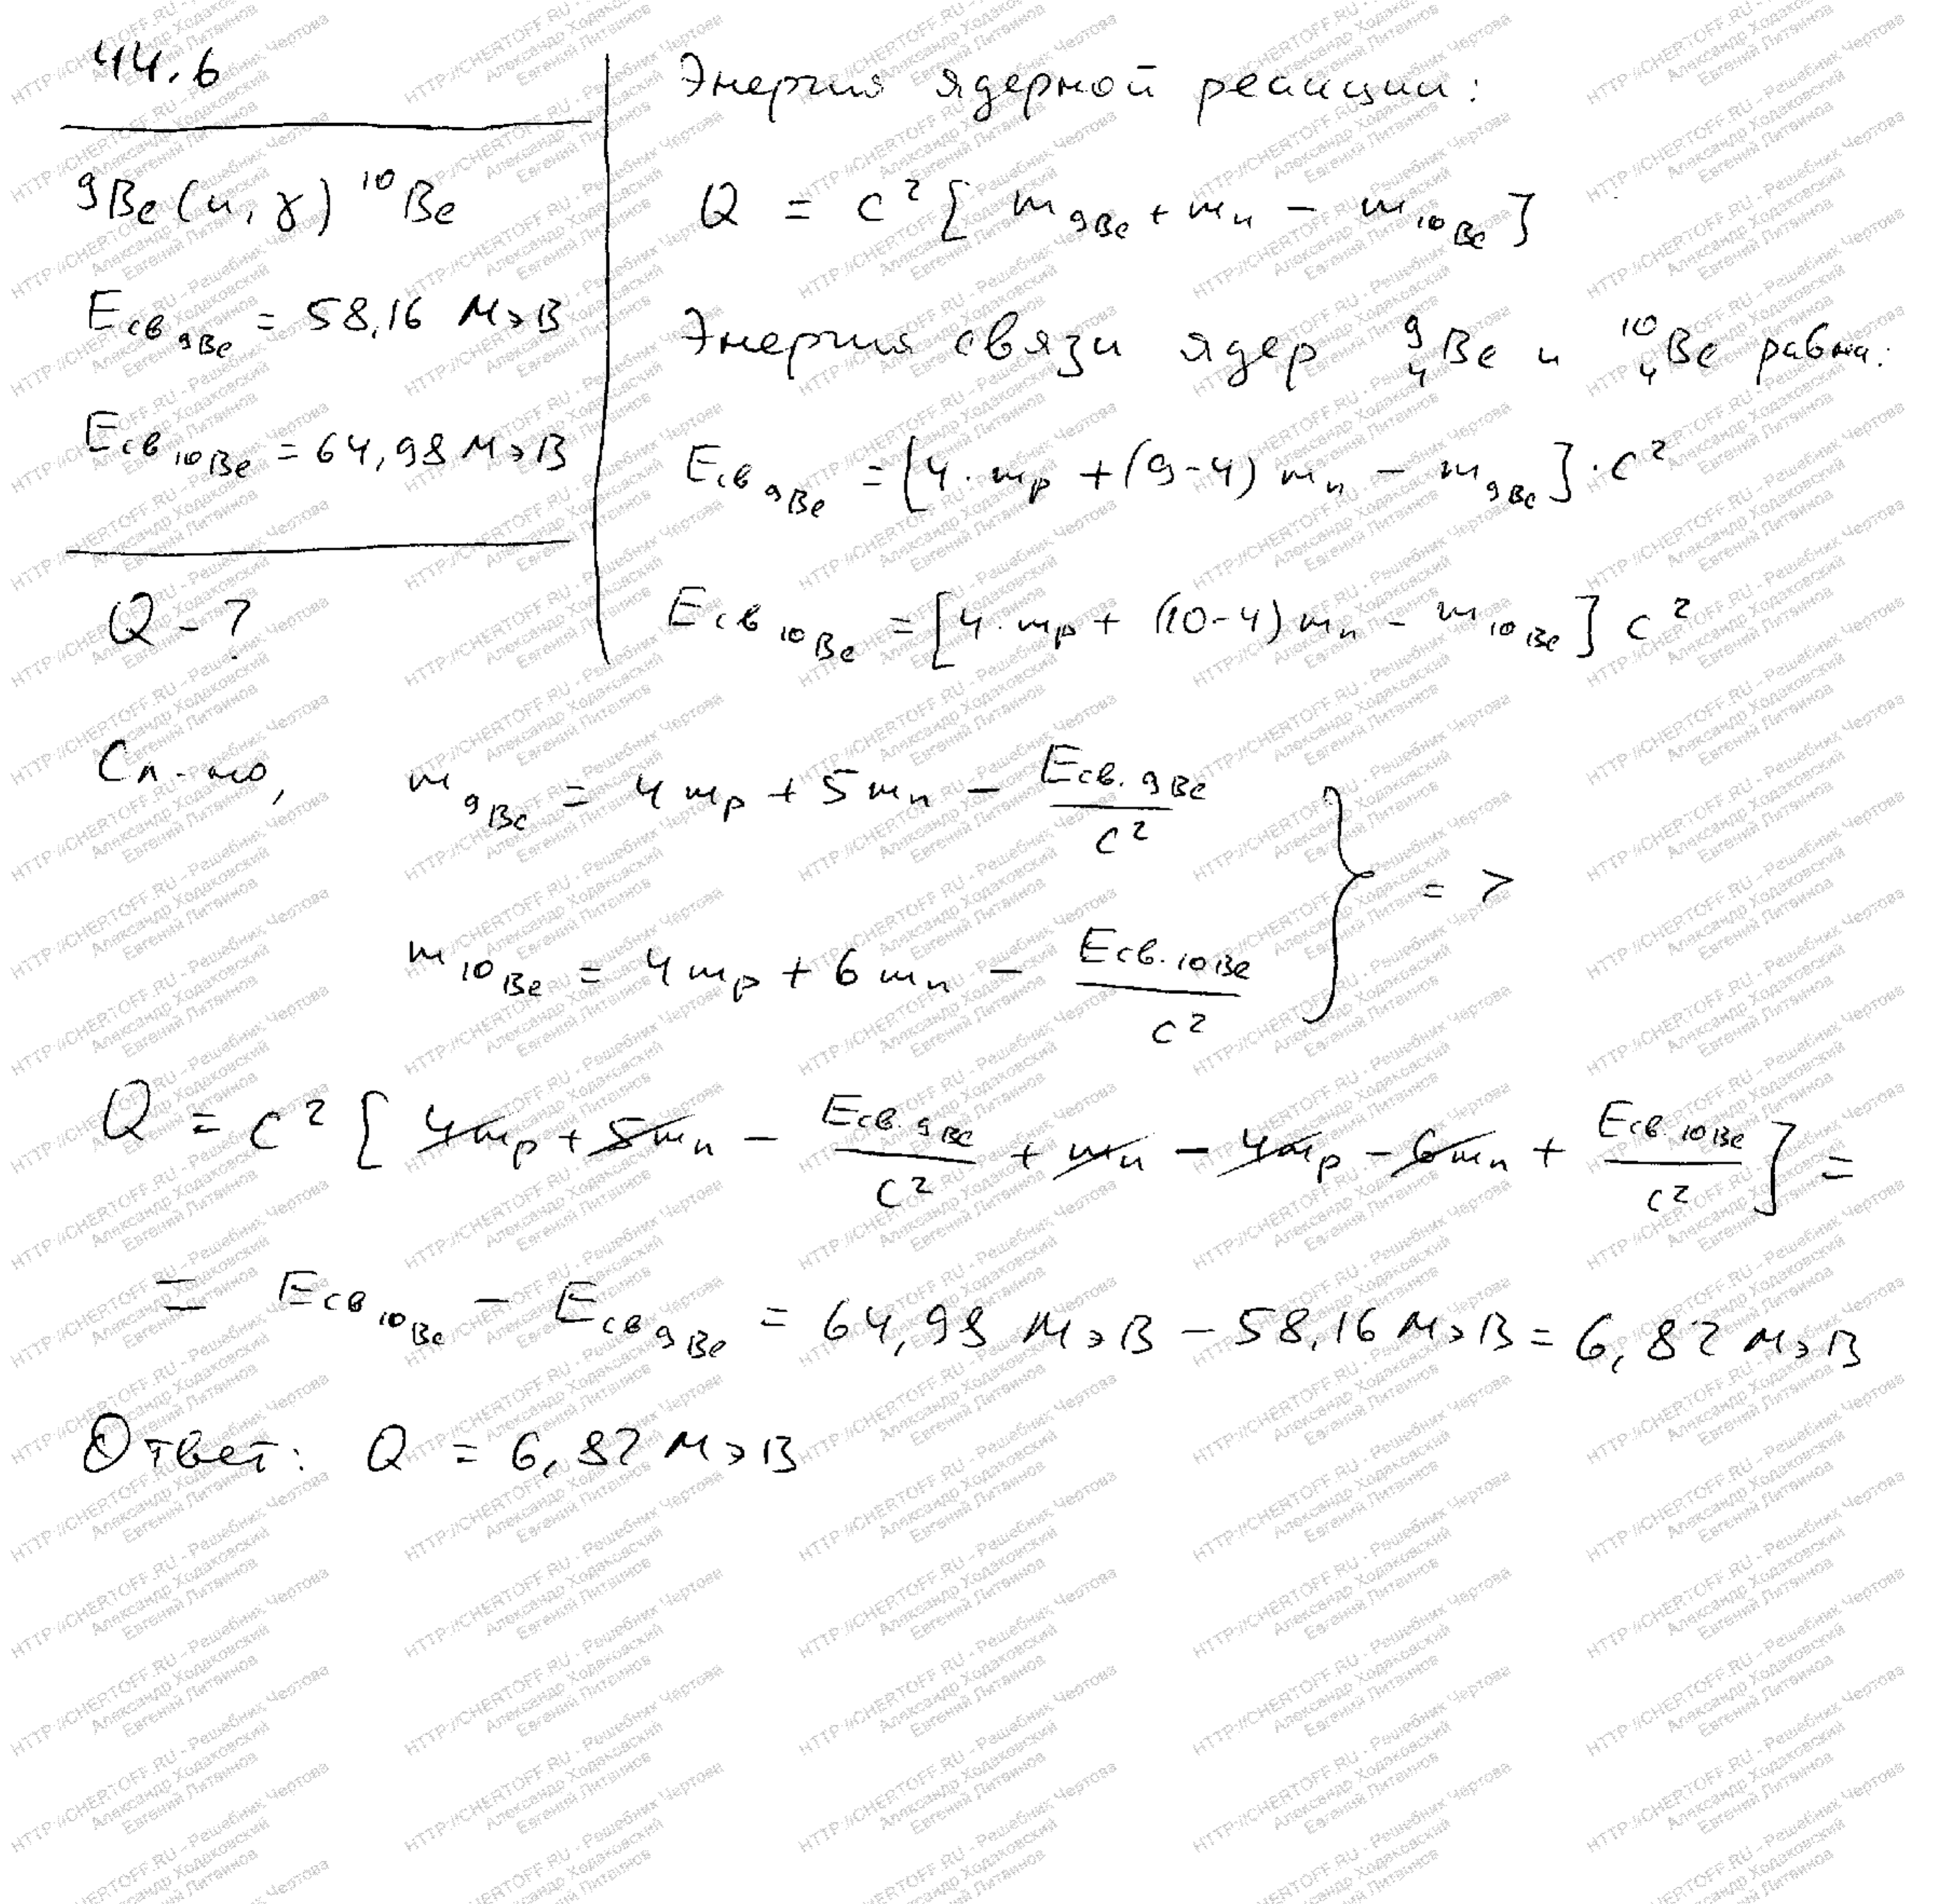 44.6
⁹Be(n, γ) ¹⁰Be
Eсв ₉Be = 58,16 МэВ
Eсв ₁₀Be = 64,98 МэВ
Q - ?
Энергия ядерной реакции:
Q = c² [ m₉Be + mn − m₁₀Be ]
Энергия связи ядер ⁹₄Be и ¹⁰₄Be равна:
Eсв ₉Be = [4 · mp + (9-4) mn − m₉Be] · c²
Eсв ₁₀Be = [4 · mp + (10-4) mn − m₁₀Be] c²
Сл-но, m₉Be = 4mp + 5mn − Eсв. ₉Be / c²
m₁₀Be = 4mp + 6mn − Eсв. ₁₀Be / c² } =>
Q = c² [ 4mp + 5mn − Eсв. ₉Be / c² + mn − 4mp − 6mn + Eсв. ₁₀Be / c² ] =
= Eсв ₁₀Be − Eсв ₉Be = 64,98 МэВ − 58,16 МэВ = 6,82 МэВ
Ответ: Q = 6,82 МэВ
HTTP://CHERTOFF.RU - Решебник Чертова
Александр Ходаковский
Евгений Литвинов